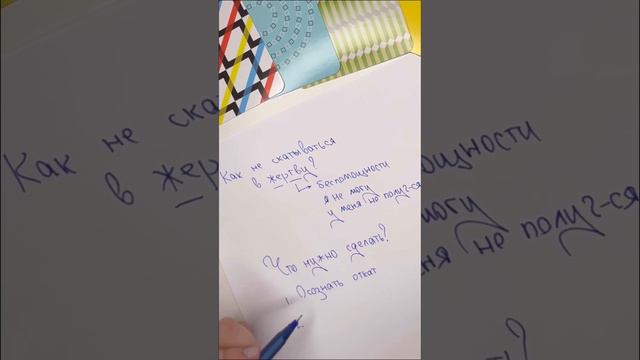 Как не скатываться
в жертву?
беспомощности
я не могу
у меня не получ-ся
Что нужно сделать?
1. Осознать откат